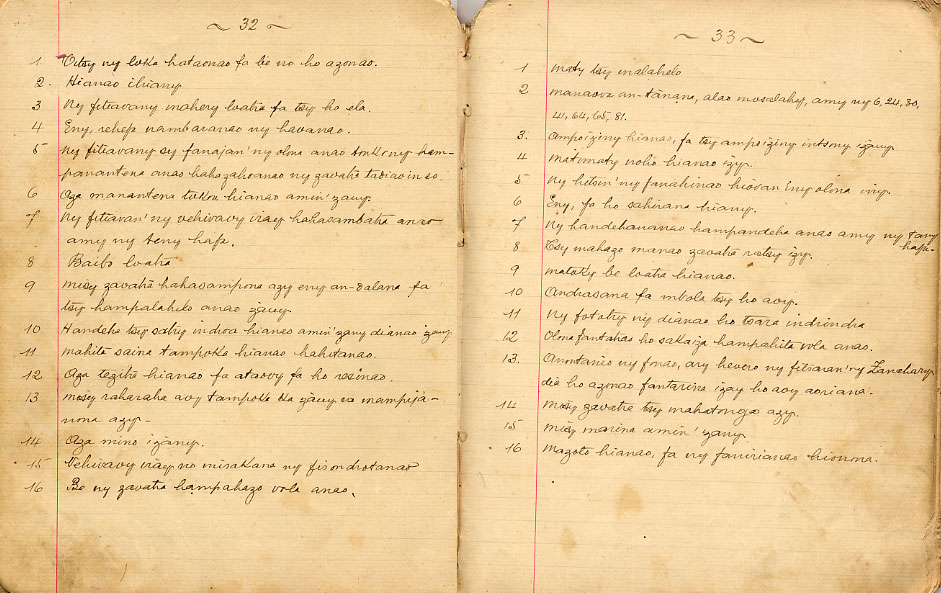 ~ 32 ~
1 ny loka hataonao fa be no ho azonao.
2. Hianao ihiany
3 Ny fitiavany mahery loatra fa tsy ho ela.
4 Eny, rehefa nambaranao ny havanao.
5 Ny fitiavany sy fanajan'ny olona anao ny ham-
panantena anao hahazahoanao ny zavatra tadiavinao.
6 Aza manantena hianao amin'izany.
7 Ny fitiavan'ny vehivavy iray hahasambatra anao
amy ny teny hafa.
8 Baibo loatra
9 misy zavatra hahasampona azy eny an-dalana fa
tsy hampalahelo anao izany.
10 Handeha tsy satry indroa hianao amin'izany dianao izany
11 mahita saina tampoka hianao hahitanao.
12 Aza tezitra hianao fa ataovy fa ho resinao.
13 misy raharaha avy tampoka ka izany no mampijà-
nona azy.
14 Aza mino izany.
15 Vehivavy iray no misakana ny fisondrotanao
16 Be ny zavatra hampahazo vola anao.
~ 33 ~
1 maty tsy malahelo
2 manaova an-tànana, alao mosalahy, amy ny 6, 24, 30,
41, 64, 65, 81.
3. Ampoiziny hianao, fa tsy ampoiziny intsony izany
4 matimaty noho hianao izy.
5 Ny hitsin'ny fanahinao hiovan'ny olona iny.
6 Eny, fa ho sahirana hiany.
7 Ny handehananao hampandeha anao amy ny tany
hafa.
8 Tsy mahazo manao zavatra ratsy izy.
9 matoky be loatra hianao.
10 Andrasana fa mbola tsy ho avy.
11 Ny fotatry ny dianao ho tsara indrindra
12 Olona fantatrao ho sakaiza hampahita vola anao.
13. Anontanio ny fonao, ary hevero ny fitiavan'ny Zanahary
dia ho azonao fantarina izay ho avy aoriana.
14 misy zavatra tsy mahatonga azy.
15 misy marina amin'izany.
16 Mazoto hianao, fa ny faniriana hiorina.